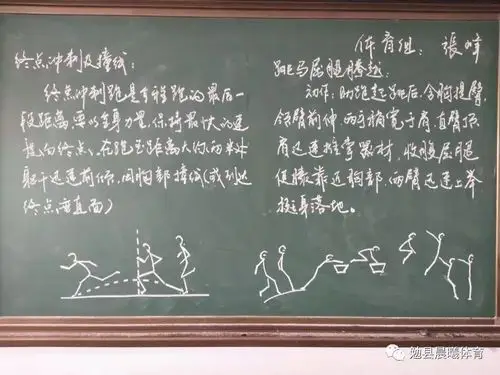 体育组：張峰
终点冲刺及撞线：
终点冲刺跑是全程跑的最后一
段距离,要以全身力量,保持最大的速
度向终点,在跑至距离大约的一米时
躯干迅速前倾,用胸部撞线(或到达
终点垂直面)
跳马屈腿腾越
动作：助跑起跳后,含胸提臀,
领臂前伸,两手稍宽于肩,直臂顶
肩迅速推掌器材,收腹屈腿
使膝靠近胸部,两臂迅速上举
挺身落地。
勉县晨曦体育